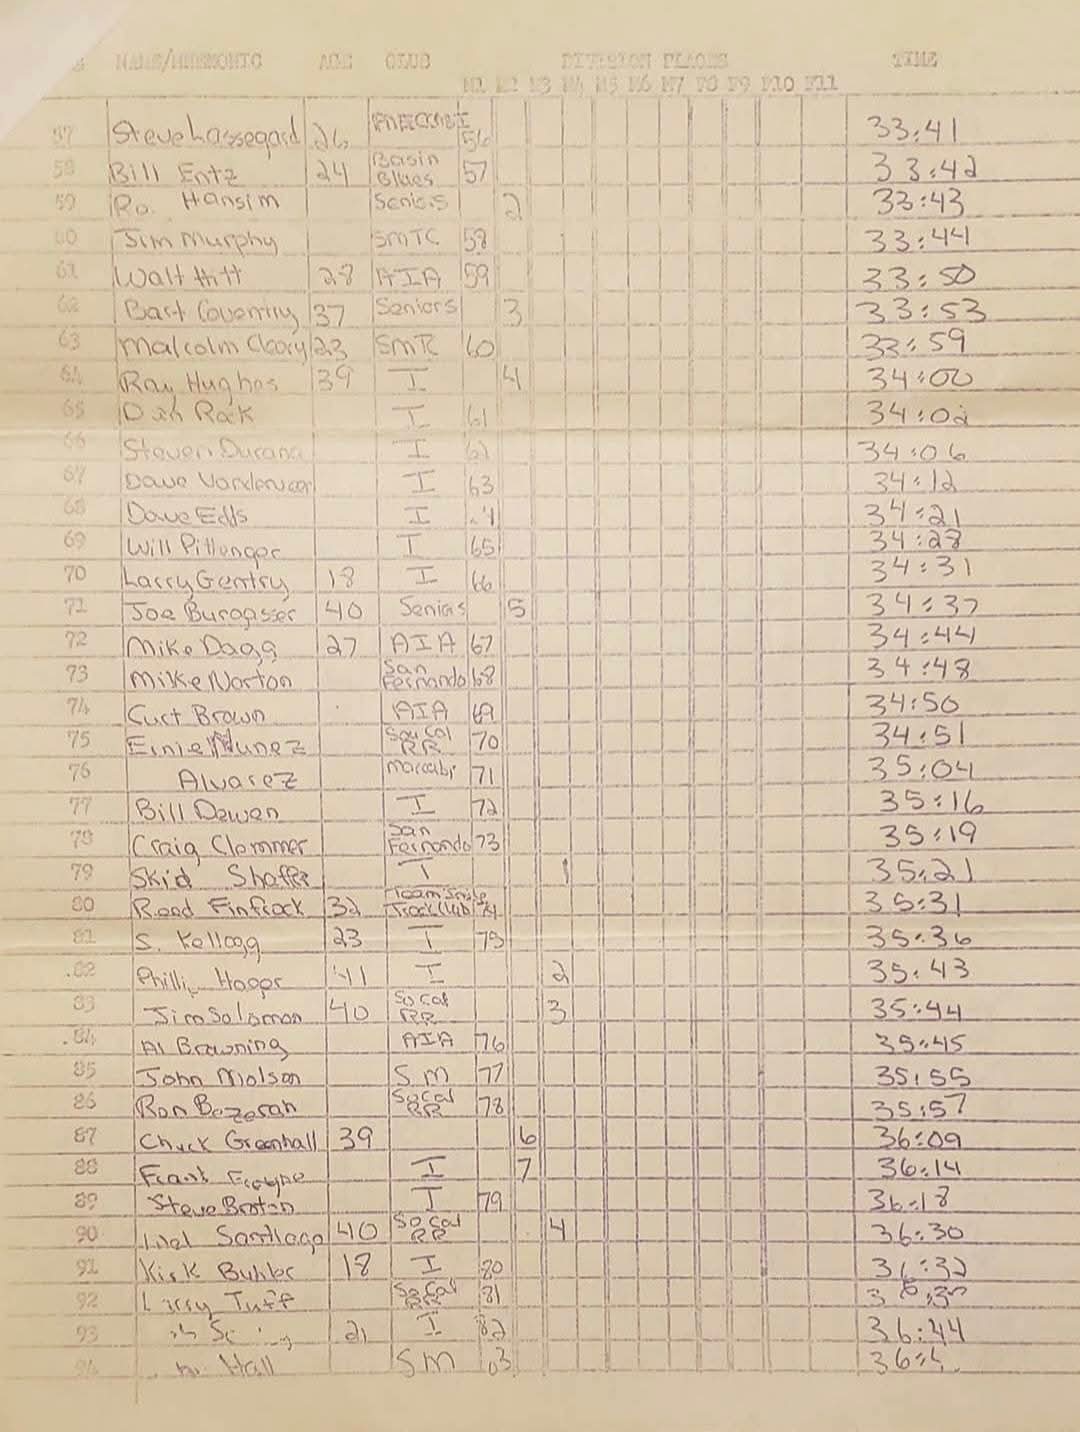 NAME/MNEMONIC AGE CLUB DIVISION PLACES TIME
M1 M2 M3 M4 M5 M6 M7 F8 F9 F10 F11
57 Steve Lassegard 26 56 33:41
58 Bill Entz 24 Basin Blues 57 33:42
59 Ro. Hansim Seniors 2 33:43
60 Jim Murphy SMTC 58 33:44
61 Walt Hitt 28 AIA 59 33:50
62 Bart Coventry 37 Seniors 3 33:53
63 Malcolm Cleary 23 SMTC 60 33:59
64 Ray Hughes 39 I 4 34:00
65 Dan Rock I 61 34:02
66 Steven Durana I 62 34:06
67 Dave I 63 34:12
68 Dave Edds I 34:21
69 Will Pittenger I 65 34:28
70 Larry Gentry 18 I 66 34:31
71 Joe Burgasser 40 Seniors 5 34:37
72 Mike Dagg 27 AIA 67 34:44
73 Mike Norton San Fernando 68 34:48
74 Curt Brown AIA 69 34:50
75 Ernie Nunez So Cal RR 70 34:51
76 Alvarez Maccabi 71 35:04
77 Bill Dewen I 72 35:16
78 Craig Clemmer San Fernando 73 35:19
79 Skid Shaffer I 1 35:21
80 Reed Finfrock 32 Team Track Club 74 35:31
81 S. Kellogg 23 I 75 35:36
82 Phillip Hooper 41 I 2 35:43
83 Jim Solomon 40 So Cal RR 3 35:44
84 Al Browning AIA 76 35:45
85 John Molson SM 77 35:55
86 Ron Bezeran So Cal RR 78 35:57
87 Chuck Greenhall 39 6 36:09
88 Frank I 7 36:14
89 Steve Broten I 79 36:18
90 Santiago 40 So Cal RR 4 36:30
91 Kirk Buhler 18 I 80 36:32
92 Larry Tuff So Cal RR 81
93 21 I 82 36:44
94 Hall SM